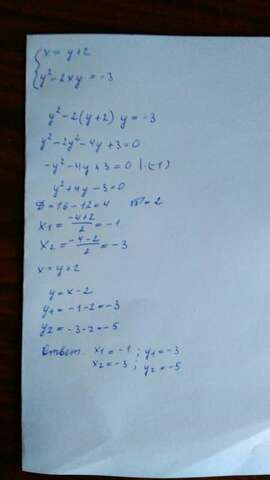 { x = y+2
y² - 2xy = -3
y² - 2(y+2) y = -3
y² - 2y² - 4y + 3 = 0
-y² - 4y + 3 = 0 | (-1)
y² + 4y - 3 = 0
D = 16 - 12 = 4 √D = 2
x₁ = (-4+2)/2 = -1
x₂ = (-4-2)/2 = -3
x = y+2
y = x - 2
y₁ = -1-2 = -3
y₂ = -3-2 = -5
Ответ. x₁ = -1 ; y₁ = -3
x₂ = -3 ; y₂ = -5